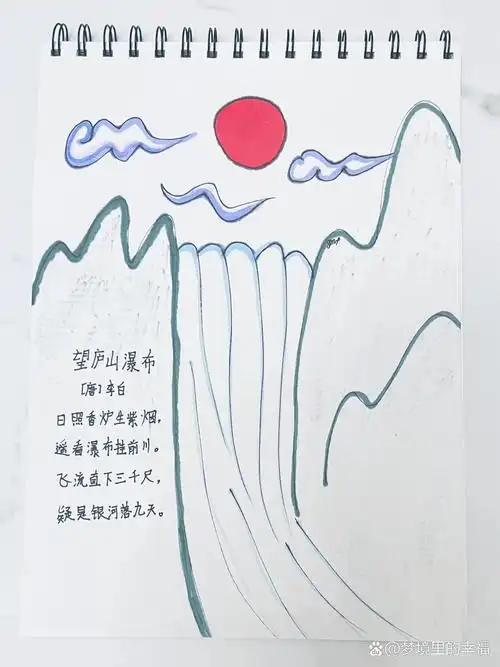 望庐山瀑布
[唐]李白
日照香炉生紫烟，
遥看瀑布挂前川。
飞流直下三千尺，
疑是银河落九天。
@梦境里的幸福